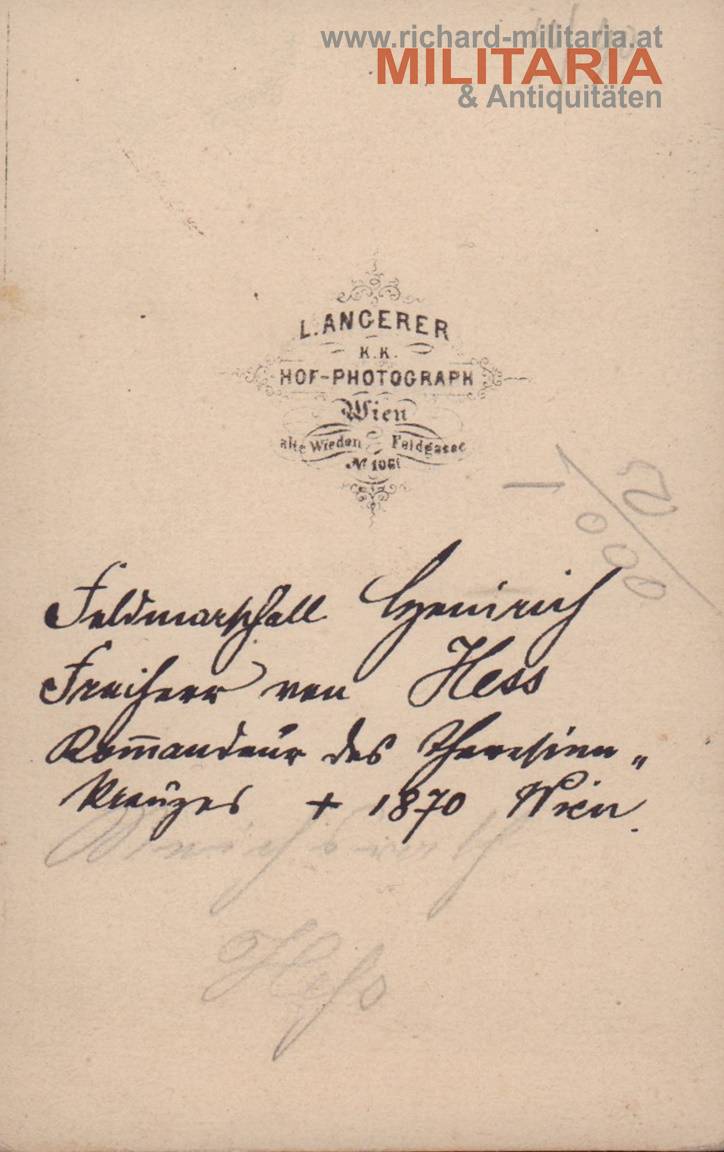 www.richard-militaria.at
MILITARIA
& Antiquitäten
L. ANGERER
K.K.
HOF-PHOTOGRAPH
Wien
alte Wieden Feldgasse
Nº 1061
1/2
000
Feldmarschall Heinrich
Freiherr von Hess
Kom̄andeur des Theresien„
Kreuzes + 1870 Wien.
Reichsrath
Heß